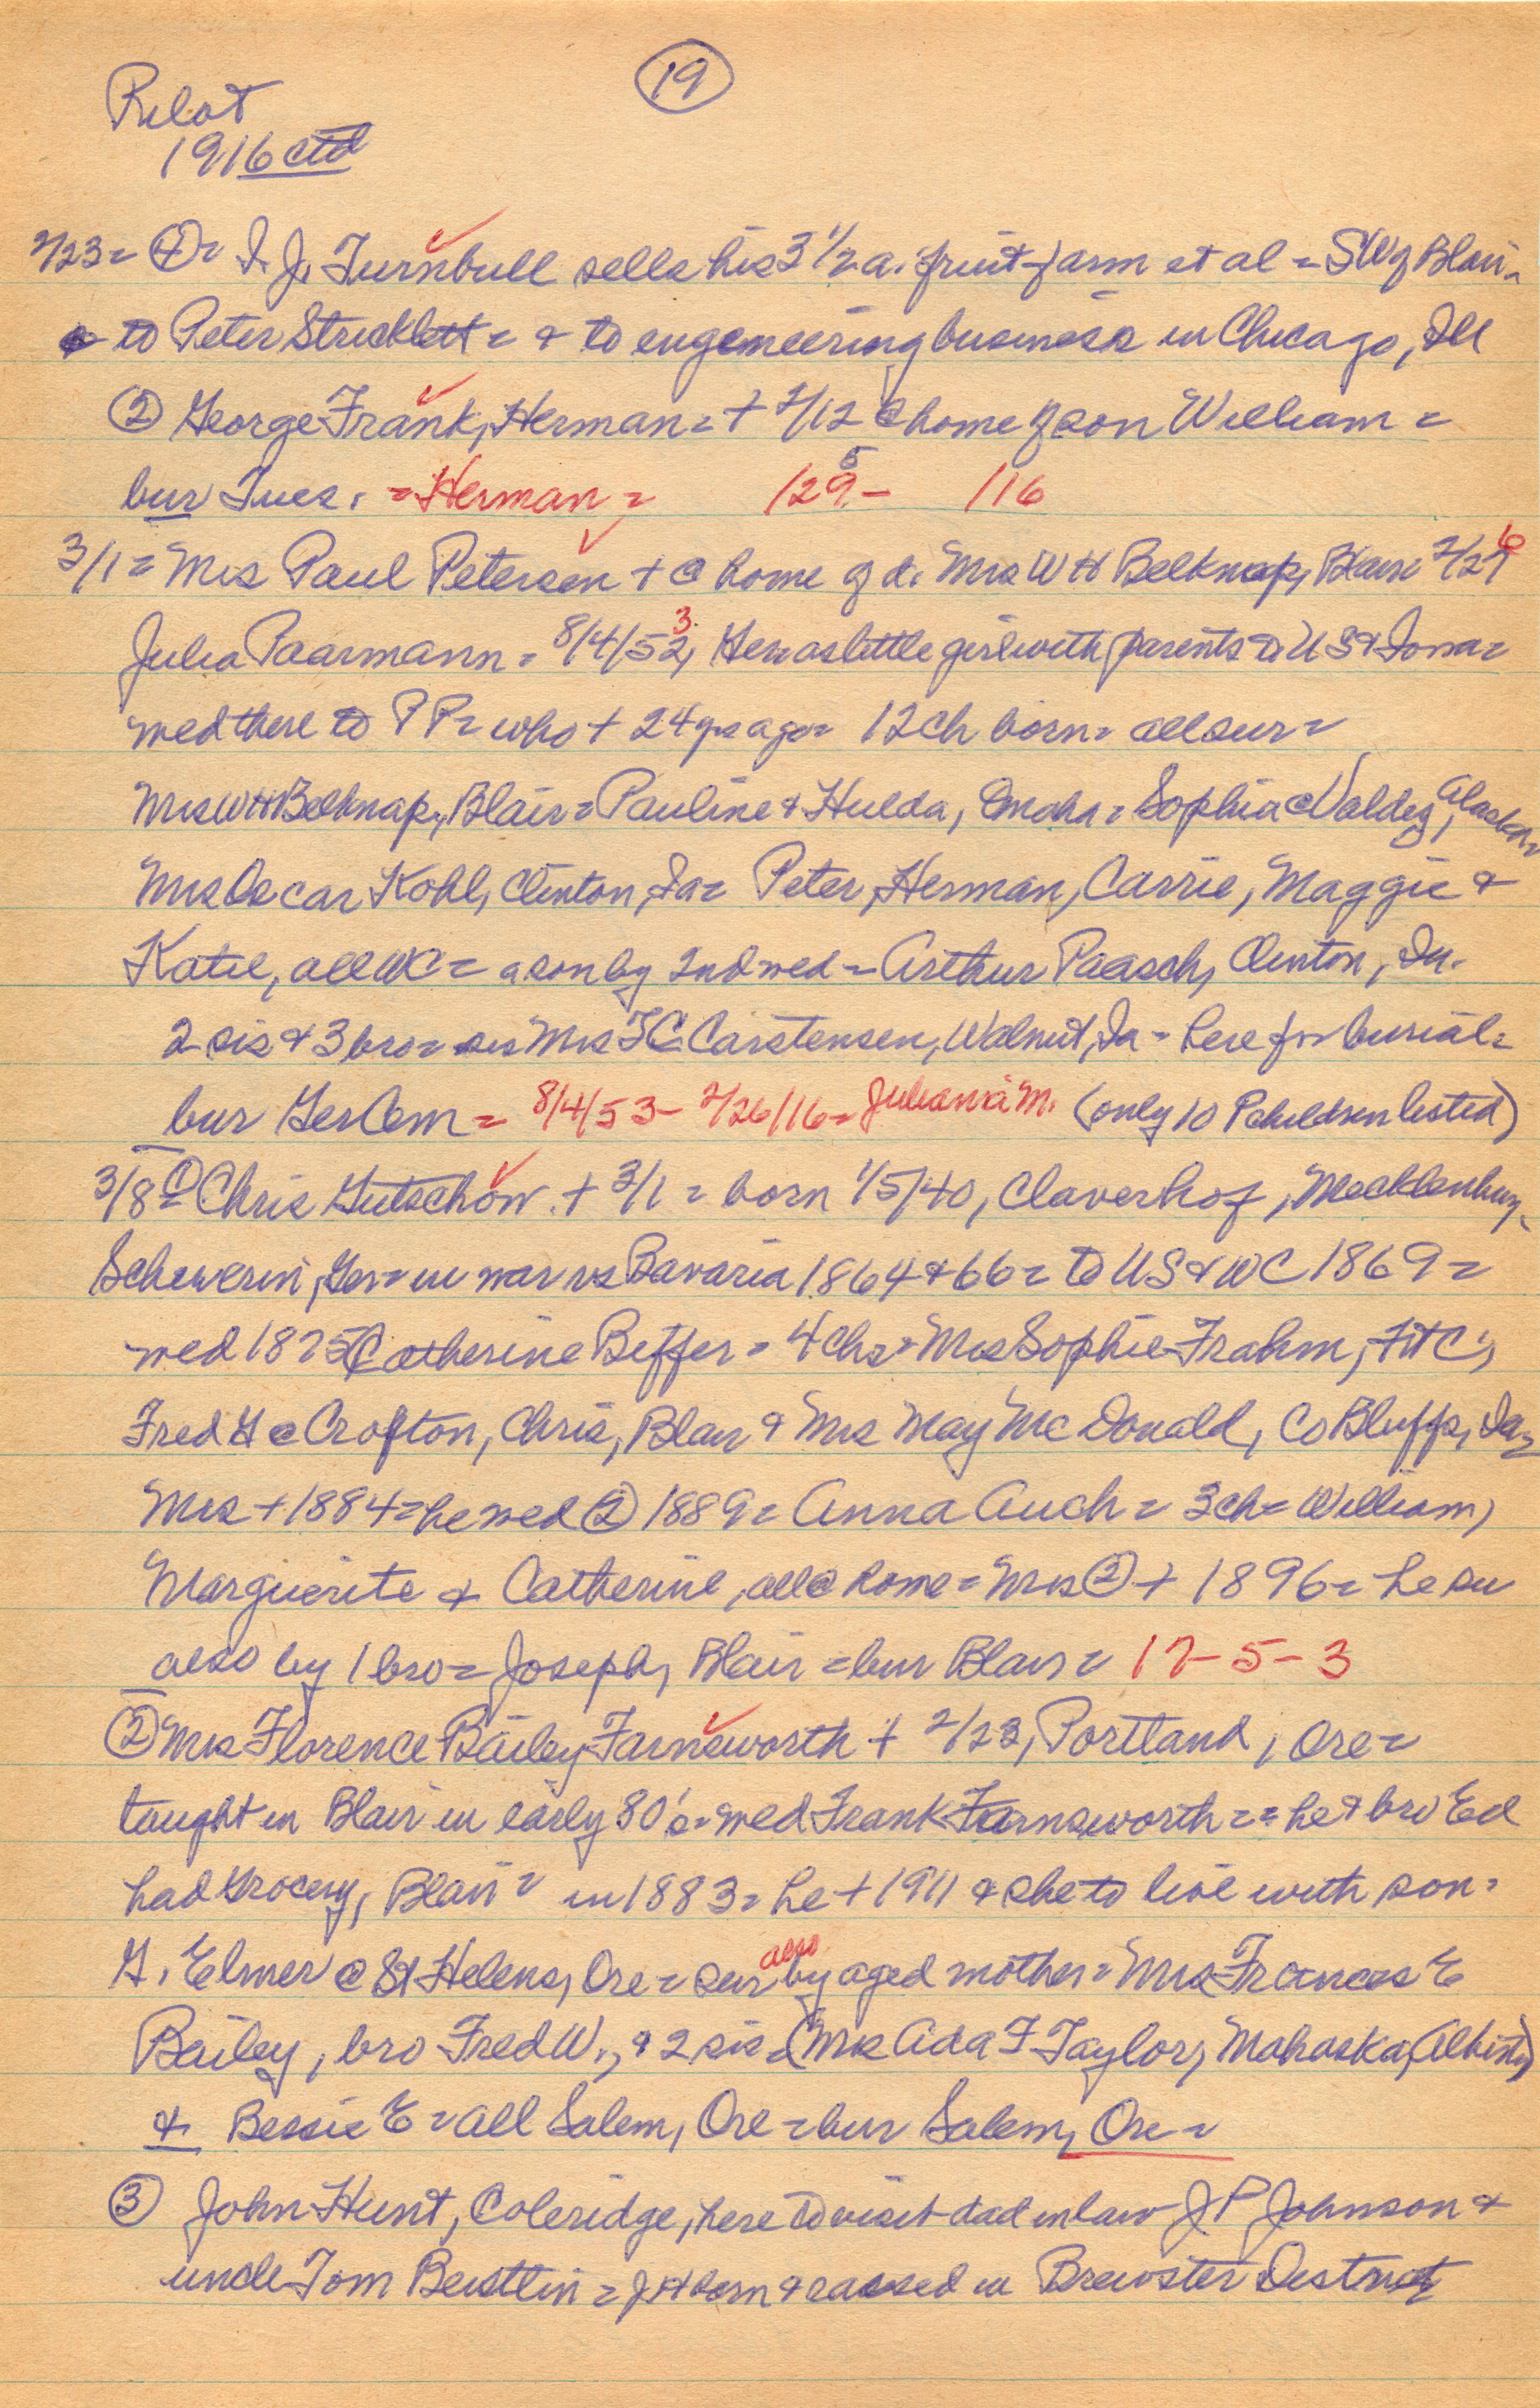 19
Pilot
1916 ctd
2/23 = 4 = I. J. Turnbull sells his 3 1/2 a. fruit farm et al = SW of Blair =
to Peter Stricklett = & to engemeering business in Chicago, Ill
② George Frank, Herman = + 2/12 @ home of son William =
bur Tues. = Herman = 1295 - 116
3/1 = Mrs Paul Petersen + @ home of d. Mrs W H Belknap, Blair 2/276
Julia Paarmann = 8/4/523, Ger as little girl with parents to US & Iowa =
wed there to P P = who + 24 yrs ago = 12 ch born = all sur =
Mrs W H Belknap, Blair = Pauline & Hulda, Omaha = Sophia @ Valdez, Alaska =
Mrs Oscar Kohl, Clinton, Ia = Peter, Herman, Carrie, Maggie &
Katie, all WC = a son by 2nd wed = Arthur Paasch, Clinton, Ia.
2 sis & 3 bro = sis Mrs F C Carstensen, Walnut, Ia - here for burial =
bur Ger Cem = 8/4/53 - 2/26/16 = Julianna M. (only 10 P children listed)
3/8 = ① Chris Gutschow + 3/1 = born 1/5/40, Claverhof, Mecklenburg-
Schewerin, Ger = in war vs Bavaria 1864 & 66 = to US & WC 1869 =
wed 1875 Catherine Beffer = 4 ch = Mrs Sophie Frahm, Ft C;
Fred G @ Crofton, Chris, Blair & Mrs May McDonald, Co Bluffs, Ia =
Mrs + 1884 = he wed ② 1889 = Anna Auch = 3 ch = William,
Marguerite & Catherine, all @ home = Mrs ② + 1896 = he su
also by 1 bro = Joseph, Blair = bur Blair = 17-5-3
② Mrs Florence Bailey Farnsworth + 2/23, Portland, Ore =
taught in Blair in early 80's = wed Frank Farnsworth = = he & bro Ed
had Grocery, Blair = in 1883 = he + 1911 & she to live with son =
G. Elmer @ St Helens, Ore = sur also by aged mother = Mrs Frances E
Bailey, bro Fred W., & 2 sis = (Mrs Ada F Taylor, Mahaska, Albin)
& Bessie E = all Salem, Ore = bur Salem, Ore =
③ John Hunt, Coleridge, here to visit dad in law J P Johnson &
uncle Tom Beistlin = J H born & raised in Brewster District